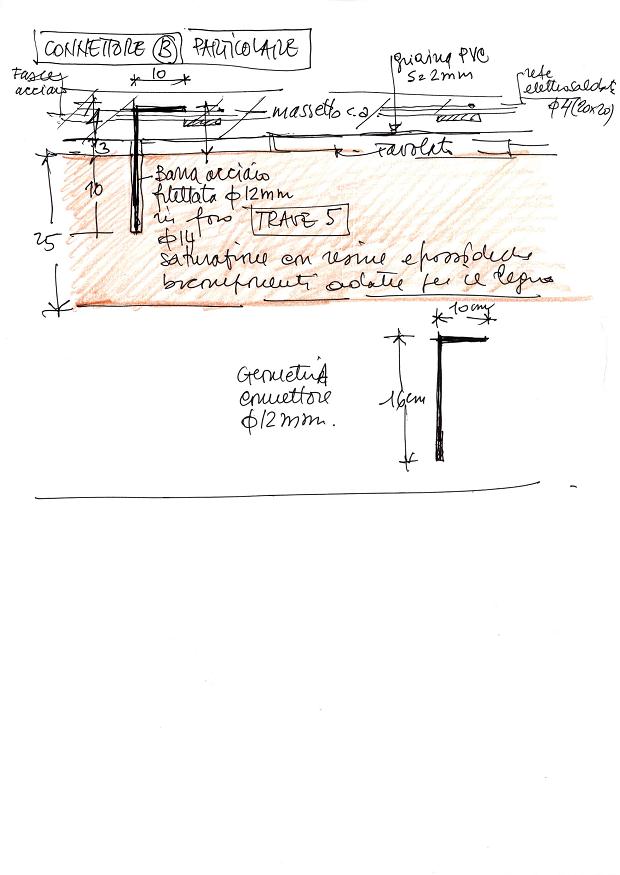 CONNETTORE B PARTICOLARE
Fasce
acciaio
10
guaina PVC
S=2mm
rete
elettrosaldata
φ4(20x20)
massetto c.a
4
3
Tavolato
10
25
Barra acciaio
filettata φ12mm
in foro
φ14
TRAVE 5
saturazione con resine epossidiche
bicomponenti adatte per il legno
10cm
Geometria
connettore
φ12mm.
16cm